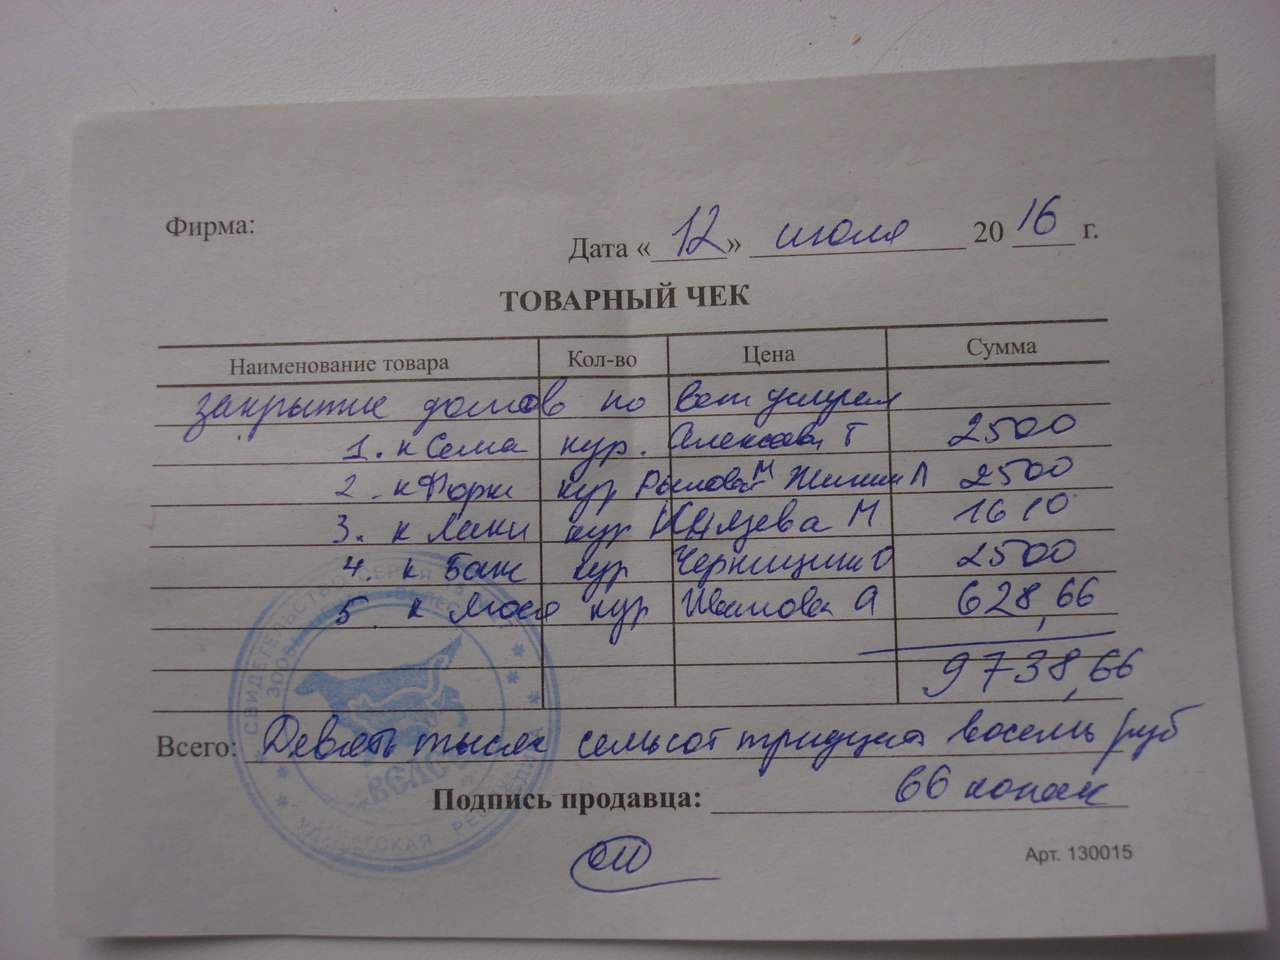 Фирма:
Дата «12» июля 2016 г.
ТОВАРНЫЙ ЧЕК
Наименование товара Кол-во Цена Сумма
закрытие долгов по вет услугам
1. к Сема кур. Т 2500
2. к кур Рылова М Жикин Л 2500
3. к Лаки кур Князева М 1610
4. к кур О 2500
5. к кур Иванова А 628,66
9738,66
Всего: Девять тысяч семьсот тридцать восемь руб
Подпись продавца: 66 копеек
СВИДЕТЕЛЬСТВО СЕРИЯ
УДМУРТСКАЯ РЕСПУБЛИКА
Арт. 130015